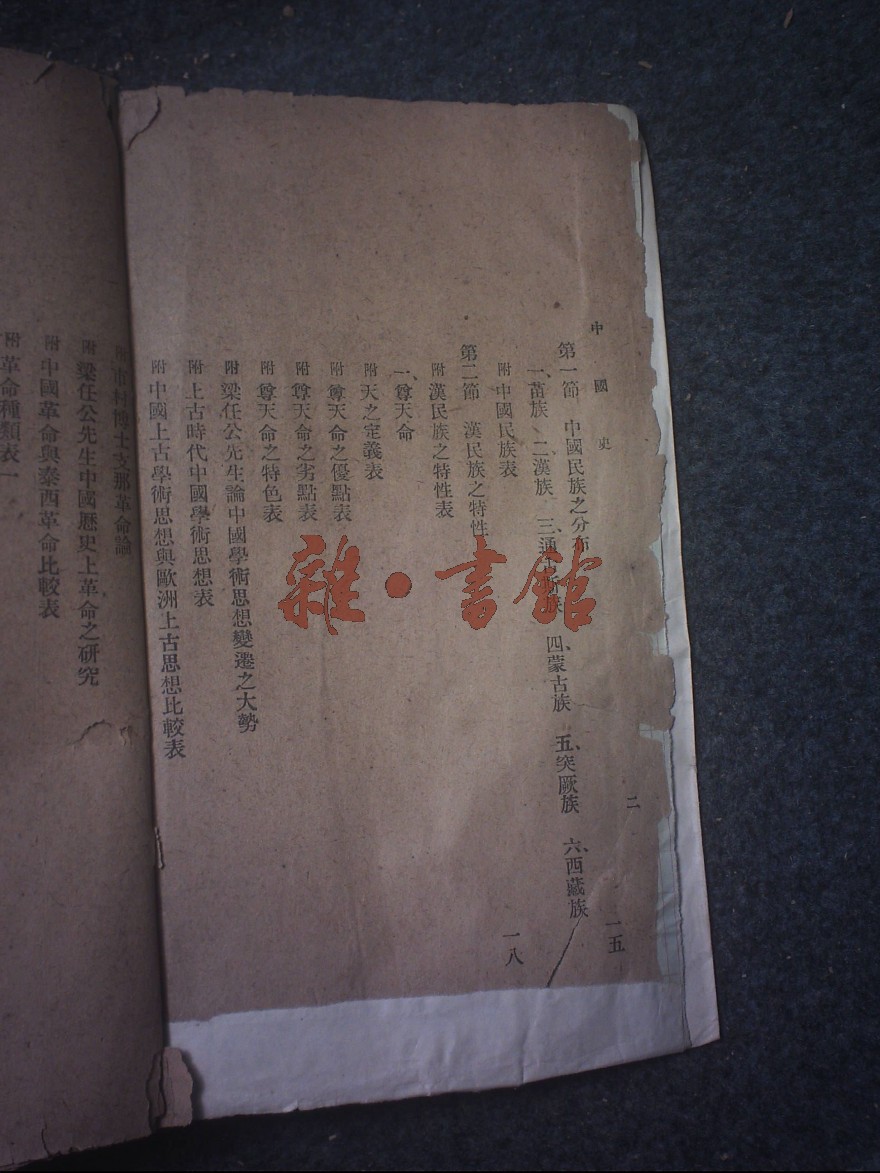 中國史
二
第一節 中國民族之分布
一五
一、苗族 二、漢族 三、通古斯族 四、蒙古族 五、突厥族 六、西藏族
附 中國民族表
第二節 漢民族之特性
一八
附 漢民族之特性表
一、尊天命
附 天之定義表
附 尊天命之優點表
附 尊天命之劣點表
附 尊天命之特色表
附 梁任公先生論中國學術思想變遷之大勢
附 上古時代中國學術思想表
附 中國上古學術思想與歐洲上古思想比較表
附 市村博士支那革命論
附 梁任公先生中國歷史上革命之研究
附 中國革命與泰西革命比較表
附 革命種類表一
雜·書館